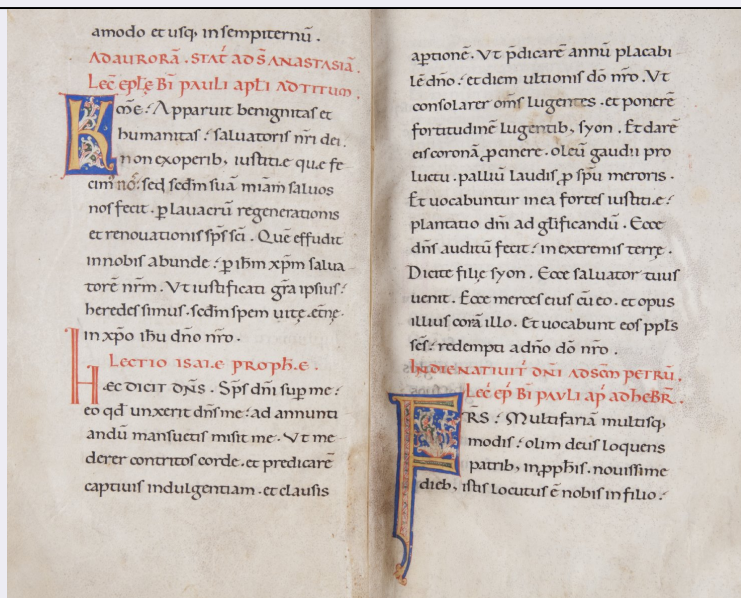 amodo et usq, in sempiternū.
AD AURORĀ. STAT̄ AD S̄ ANASTASIĀ.
Lec̄ epłe Bī PAULI APLI AD TITUM.
K̄OM̄E: Apparuit benignitas et
humanitas: saluatoris nr̄i dei.
non ex operib, iustitię quę fe
cim' nos: sed sc̄dm suā mīam saluos
nos fecit. p̲ lauacrū regenerationis
et renouationis sp̄s sc̄i. Quē effudit
in nobis abunde: p̲ ih̄m xp̄m salua
torē nr̄m. Ut iustificati gr̄a ipsius:
heredes simus. sc̄dm spem uitę ęt̄nę.
in xp̄o ih̄u dn̄o nr̄o.
LECTIO ISAIĘ PROPH̄Ę.
HĘC DICIT DN̄S. Sp̄s dn̄i sup me:
eo qđ unxerit dn̄s me: ad annunti
andū mansuetis misit me. Ut me
derer contritos corde. et predicarē
captiuis indulgentiam. et clausis
aptionē. Ut p̄dicarē annū placabi
lē dn̄o: et diem ultionis dō nr̄o. Ut
consolarer om̄s lugentes. et ponerē
fortitudinē lugentib, syon. Et darē
eis coronā p̲ cinere. oleū gaudii pro
luctu. palliū laudis p̲ sp̄u meroris.
Et uocabuntur in ea fortes iustitię:
plantatio dn̄i ad gl̄ificandū. Ecce
dn̄s auditū fecit: in extremis terrę.
Dicite filię syon. Ecce saluator tuus
uenit. Ecce merces eius cū eo. et opus
illius corā illo. Et uocabunt eos ppl̄s
sc̄s: redempti a dn̄o dō nr̄o.
IN DIE NATIUIT̄ DN̄I AD SC̄M PETRŪ.
Lec̄ ep̄ Bī PAULI AP̄ AD HEBR̄.
FR̄S: Multifariā multisq,
modis: olim deus loquens
patrib, in pphīs. nouissime
dieb, istis locutus ē nobis in filio: